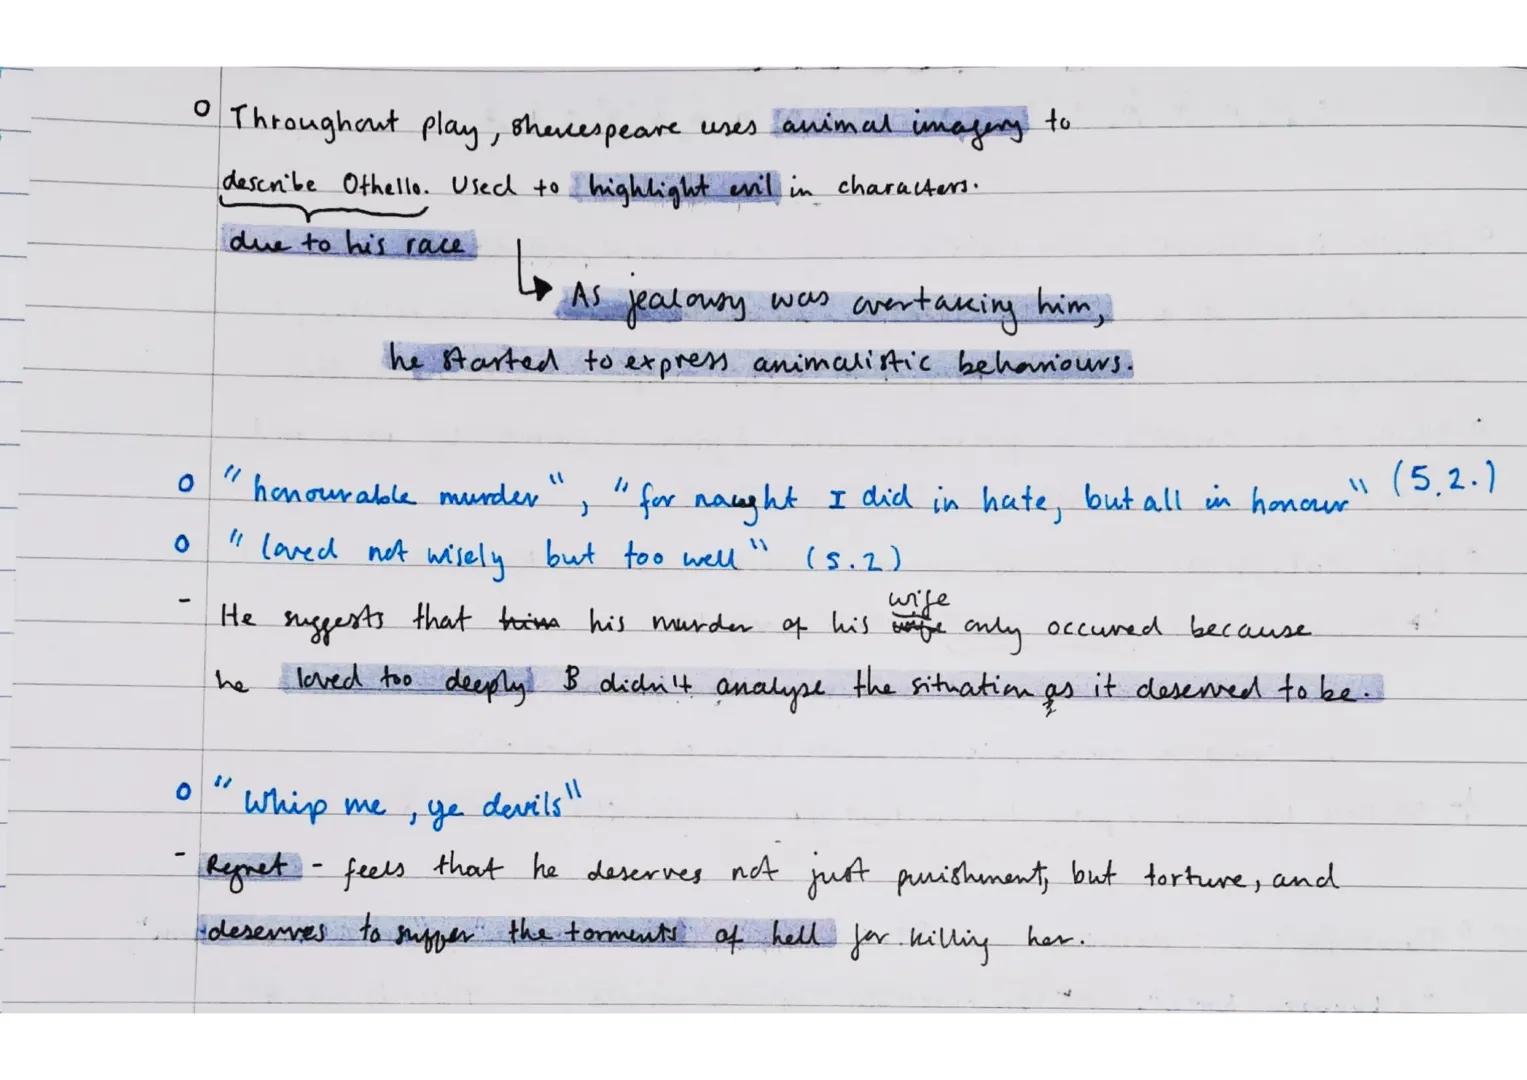 o Throughout play, Shakespeare uses animal imagery to
describe Othello. Used to highlight evil in characters.
due to his race
As jealousy was overtaking him,
he started to express animalistic behaviours.
o "honourable murder", "for naught I did in hate, but all in honour" (5.2.)
o "loved not wisely but too well" (5.2)
wife
- He suggests that his murder of his only occured because
he loved too deeply & didn't analyse the situation as it deserved to be.
o "Whip me, ye devils"
- Regret - feels that he deserves not just punishment, but torture, and
deserves to suffer the torments of hell for killing her.